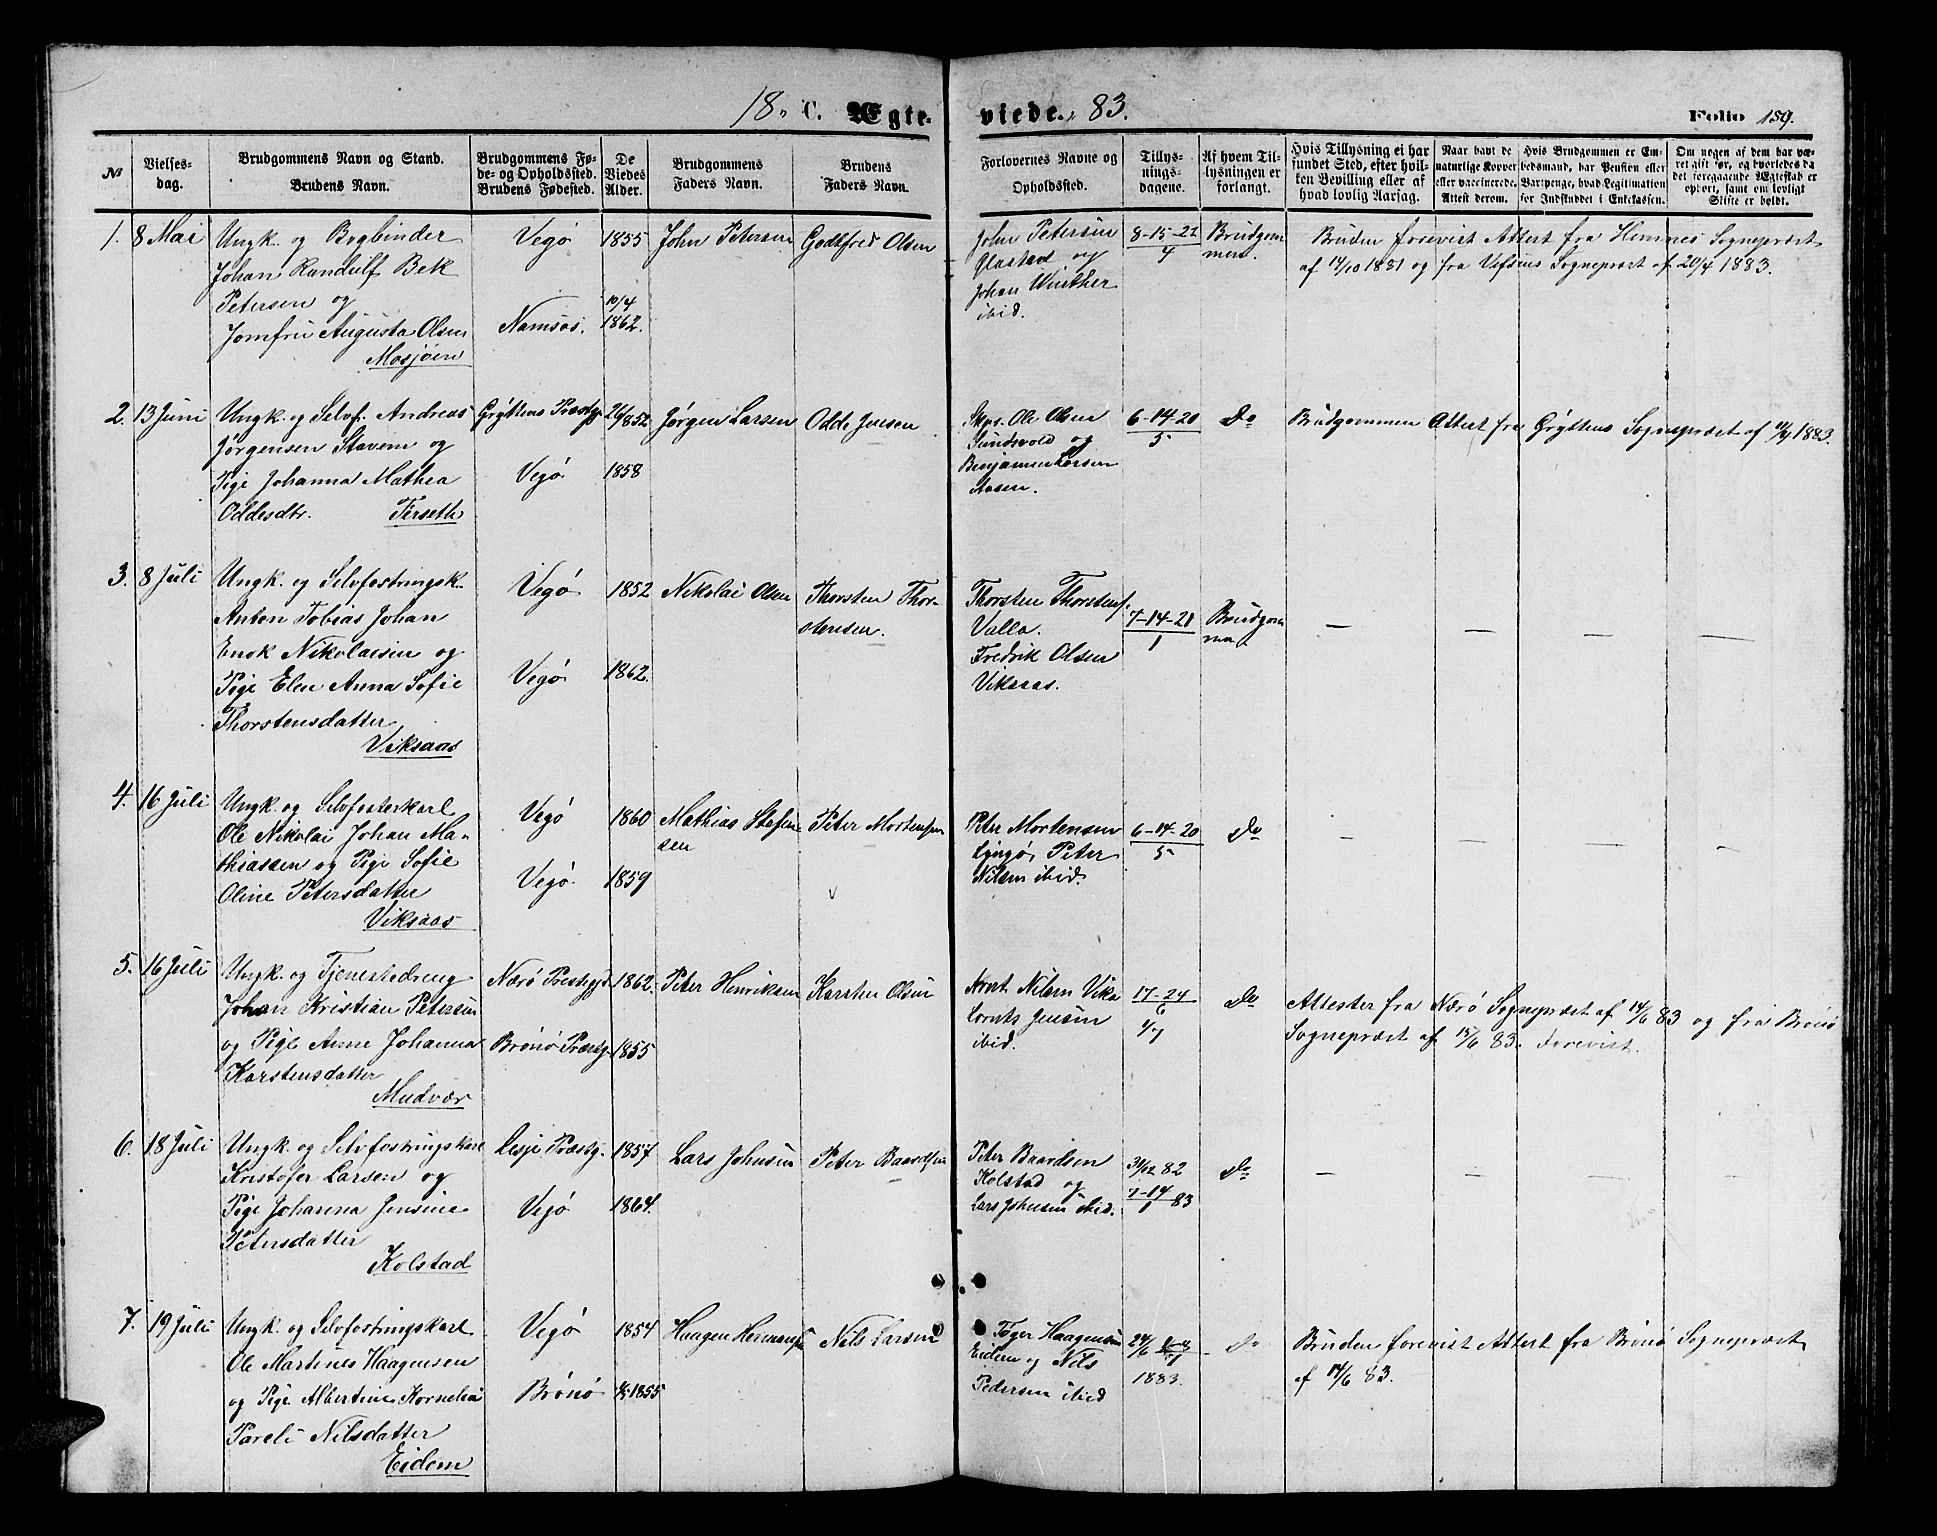 18 C. Ægteviede. 83.
Folio 159.
№
Vielses-
dag.
Brudgommens Navn og Stand.
Brudens Navn.
Brudgommens Fø-
de- og Opholdsted.
Brudens Fødested.
De
Viedes
Alder.
Brudgommens
Faders Navn.
Brudens
Faders Navn.
Forlovernes Navne og
Opholdsted.
Tillys-
nings-
dagene.
Af hvem Til-
lysningen er
forlangt.
Hvis Tillysning ei har
fundet Sted, efter hvil-
ken Bevilling eller af
hvad lovlig Aarsag.
Naar havt de
naturlige Kopper
eller vaccinerede.
Attest derom.
Hvis Brudgommen er Em-
bedsmand, har Pension eller
Vartpenge, hvad Legitimation
for Indskuddet i Enkekassen.
Om nogen af dem har væ-
ret gift før, og hvorledes da
det foregaaende Ægteskab er
ophørt, samt om lovligt
Skifte er holdt.
1. 8 Mai
Ungk. og Bogbinder
Johan Randulf Bek
Petersen og
Jomfru Augusta Olsen
Mosjøen
Vegø
Namsos.
1855
10/4
1862.
John Petersen
Godtfred Olsen
John Petersen
Gladstad og
Johan Winther
ibid.
8-15-22
4
Brudgom
men.
Bruden forevist Attest fra Hemnes Sognepræst
af 14/10 1881 og fra Vefsens Sognepræst af 20/4 1883.
2. 13 Juni
Ungk. og Selvf. Andreas
Jørgensen Stavem og
Pige Johanna Mathea
Oddesdtr.
Terseth
Grýttens Præstgj
Vegø
1852
1858
Jørgen Larsen
Odde Jensen
Skps. Ole Olsen
Sundsvold og
Benjamen Larsen
Aasen.
6-14-20
5
Do
Brudgommen Attest fra Grýttens Sognepræst af 11/4 1883.
3. 8 Juli
Ungk. og Selvfostringsk.
Anton Tobias Johan
Enok Nikolaisen og
Pige Elen Anna Sofie
Thorstensdatter
Viksaas
Vegø
Vegø
1852
1862.
Nikolai Olsen
Thorsten Thor-
stensen.
Thorsten Thorstens.
Valla.
Fredrik Olsen
Viksaas.
7-14-21
1
Brudgom
men
4. 16 Juli
Ungk. og Selvfosterkarl
Ole Nikolai Johan Ma-
thiassen og Pige Sofie
Oline Petersdatter
Viksaas
Vegø
Vegø.
1860
1859
Mathias Stefen
sen
Peter Mortensen
Peter Mortensen
Lyngø, Peter
Nilsen ibid.
6-14-20
5
Do
5. 16 Juli
Ungk. og Tjenestedreng
Johan Kristian Petersen
og Pige Anne Johanna
Karstensdatter
Mudvær
Nærø Prestegjd.
Brønø Præstg.
1862.
1855
Peter Henriksen
Karsten Olsen
Arnt Nilsen Vika
Cornts Jensen
ibid.
17-24
6
1/7
Do
Attester fra Nærø Sognepræst af 14/6 83 og fra Brønø
Sognepræst af 15/6 83. Forevist.
6. 18 Juli
Ungk. og Selvfostringskarl
Kristofer Larsen og
Pige Johanna Jensine
Petersdatter
Kolstad
Lesje Præstg.
Vegø
1857
1864.
Lars Johnsen
Peter Baardsen
Peter Baardsen
Kolstad og
Lars Johnsen ibid.
31/12 82
7-14
1 83
Do
7. 19 Juli
Ungk. og Selvfostringskarl
Ole Martines Haagensen
og Pige Albertine Kornelia
Pareli Nilsdatter
Eidem
Vegø
Brønø
1854
1855
Haagen Hermans
Nils Larsen
Toger Haagensen
Eidem og Nils
Pedersen ibid
24/6
1883.
Do
Bruden forevist Attest fra Brønø Sognepræst
af 14/6 83.